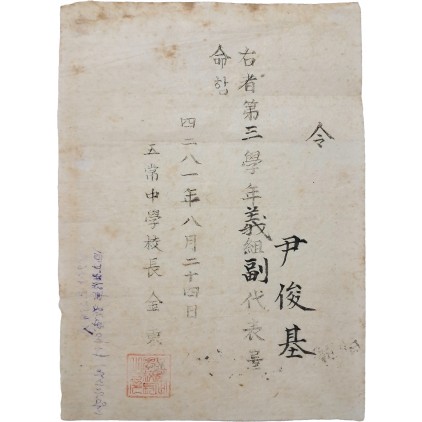 令
尹俊基
右者第三學年義組副代表를
命함
四二八一年八月二十四日
五常中學校長 金東